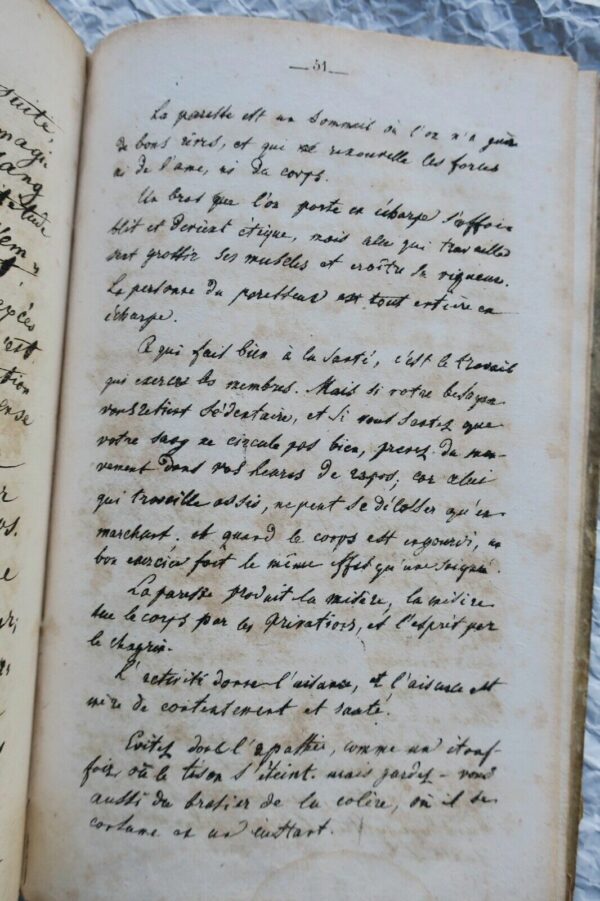 suite,
magi
lang
titude
dem
epés
est
tion
ense
r
os.
e
gri
r
— 51 —
La paresse est un sommeil où l'on n'a guère
de bons rêves, et qui ne renouvelle les forces
ni de l'ame, ni du corps.
Un bras que l'on porte en écharpe s'affoi
blit et devient étique, mais celui qui travaille
sent grossir ses muscles et croître sa vigueur.
La personne du paresseux est tout entière en
écharpe.
Ce qui fait bien à la santé, c'est le travail
qui exerce les membres. Mais si votre besogne
vous retient sédentaire, et si vous sentez que
votre sang ne circule pas bien, prenez du mou-
vement dans vos heures de repos; car celui
qui travaille assis, ne peut se délasser qu'en
marchant. et quand le corps est engourdi, un
bon exercice fait le même effet qu'une saignée.
La paresse produit la misère, la misère
tue le corps par les privations, et l'esprit par
le chagrin.
L'activité donne l'aisance, et l'aisance est
mère de contentement et santé.
Evitez donc l'apathie, comme un étouf-
foir, où le tison s'éteint. mais gardez-vous
aussi du brasier de la colère, où il se
consume en un instant.